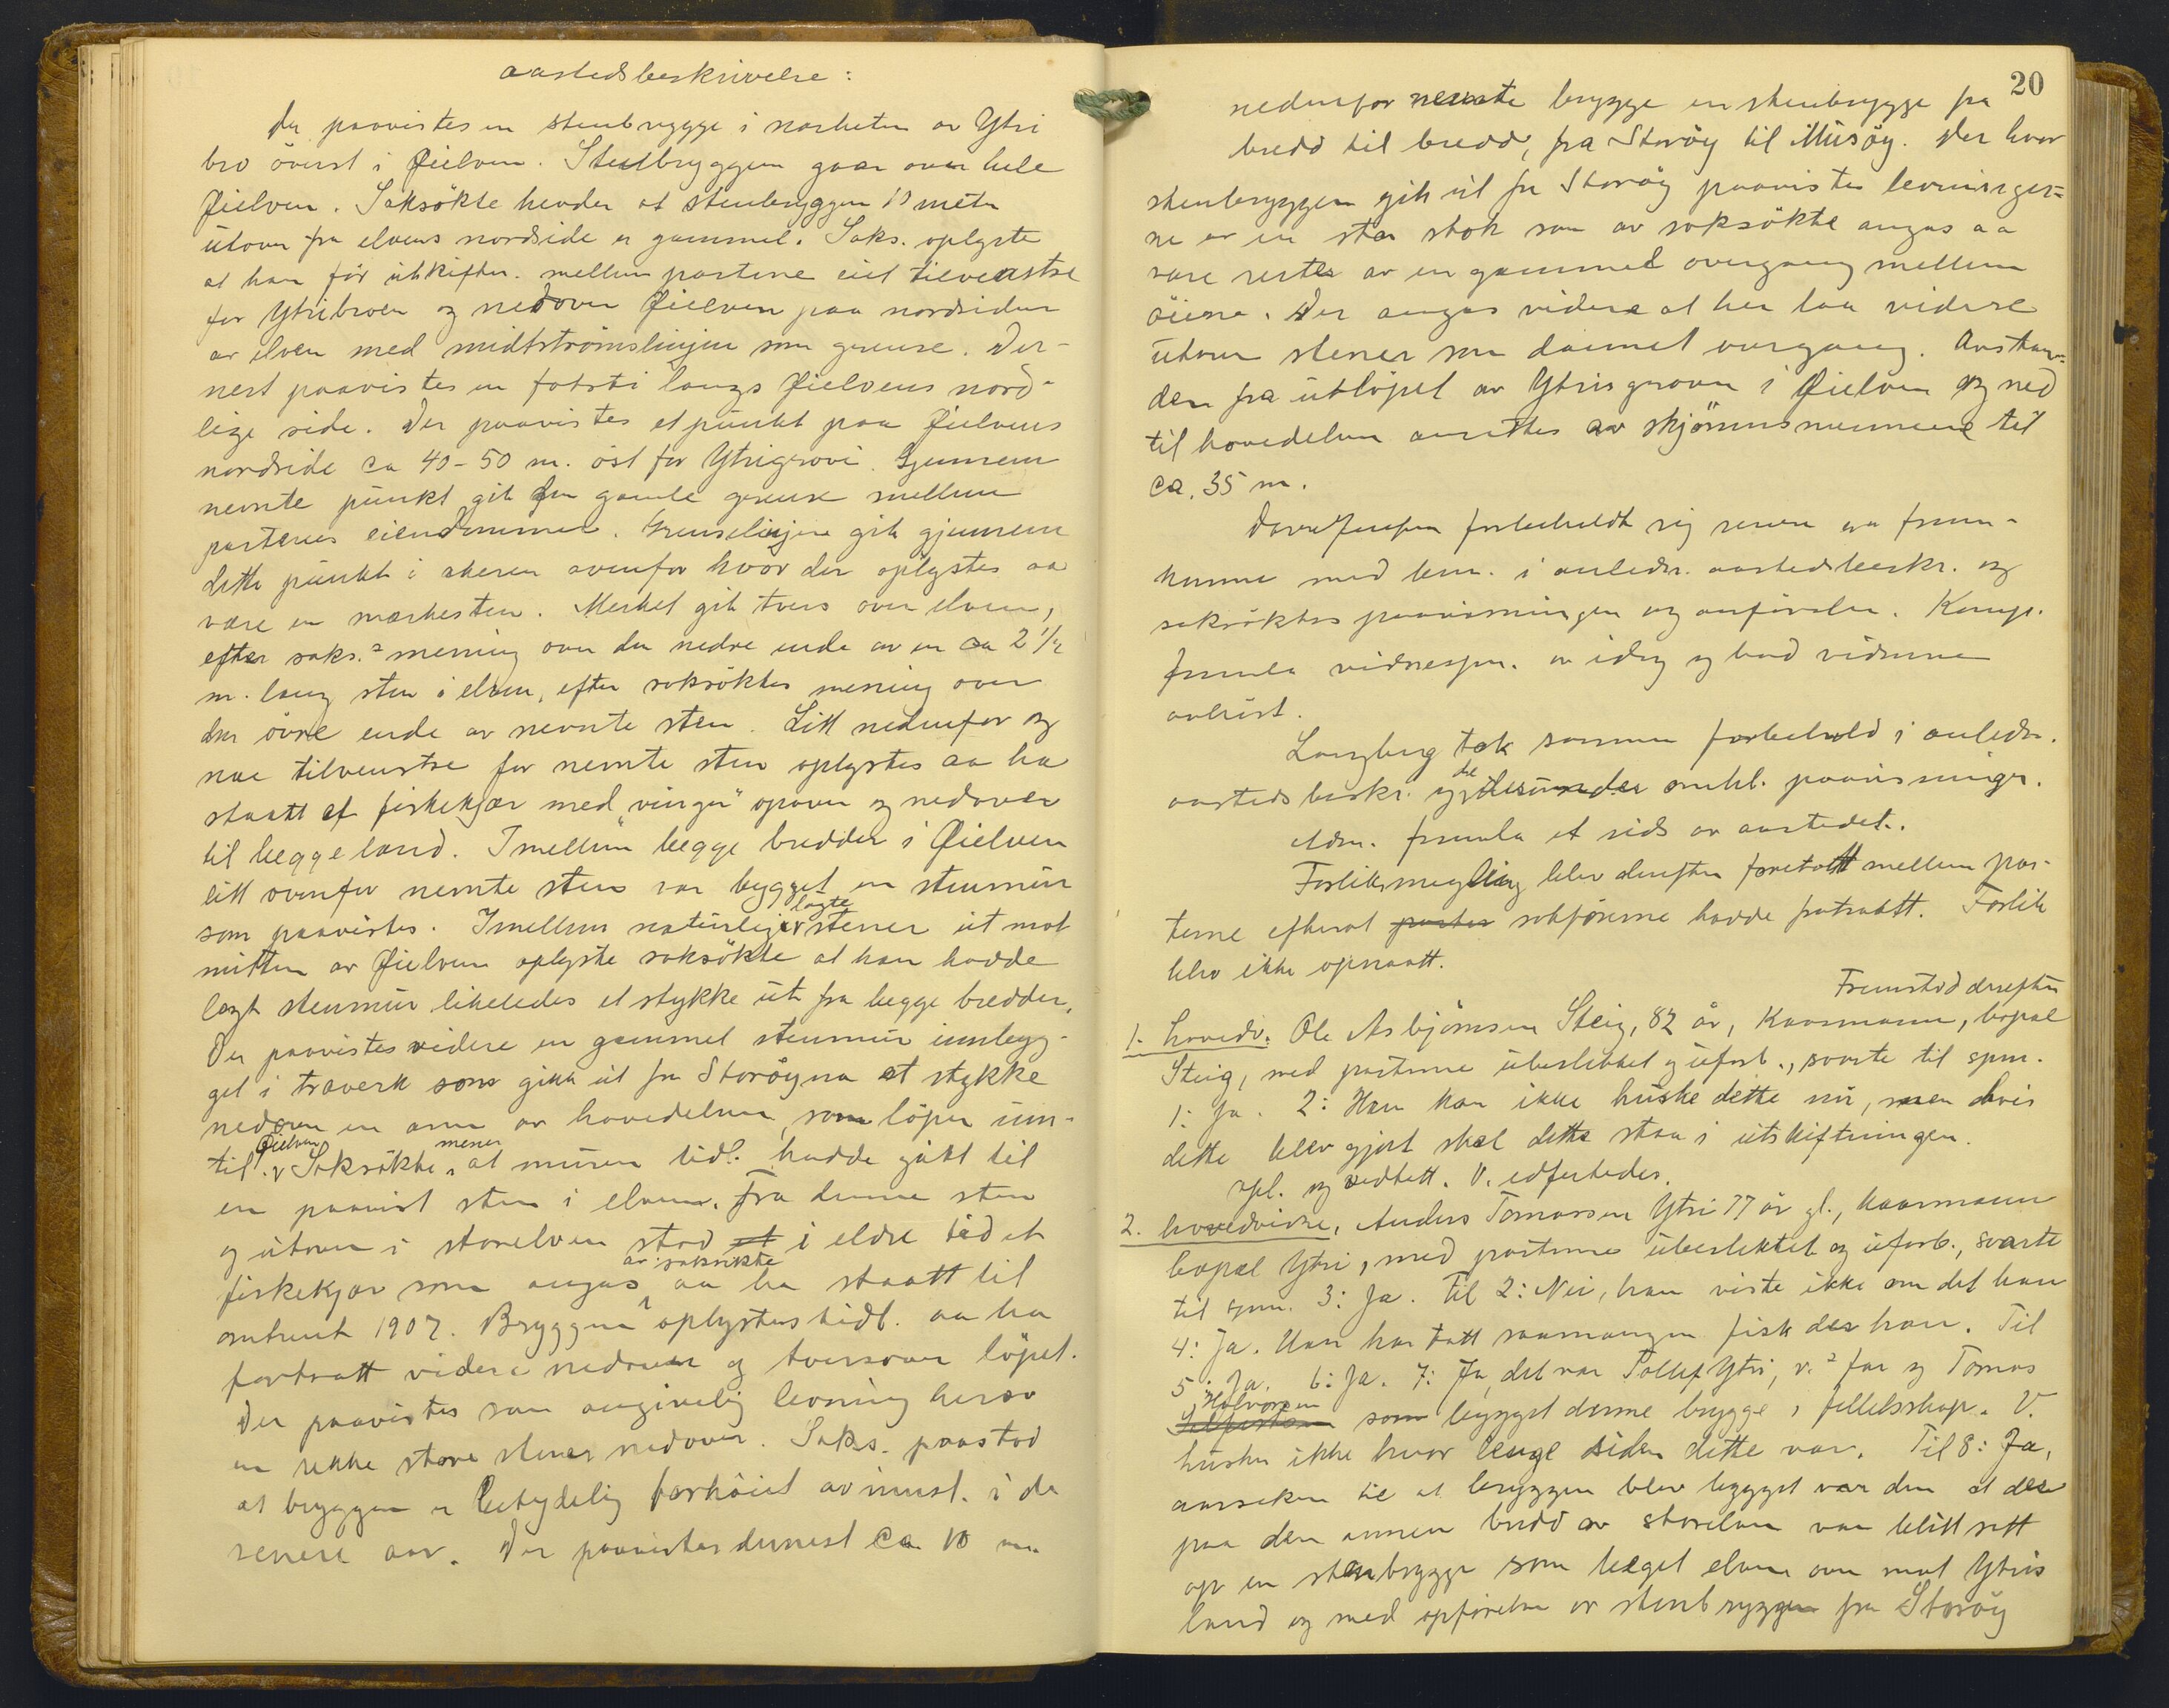 aastedsbeskrivelse:
Der paavistes en stenbrygge i nærheten av Ytri
bro överst i Øielven. Stenbryggen gaar over hele
Øielven. Saksökte hevder at stenbryggen 10 meter
utover fra elvens nordside er gammel. Saks. oplyste
at han för utskiftn. mellem partene eiet tilvenstre
for Ytribroen og nedover Øielven paa nordsiden
av elven med midtströmslinjen som grense. Der-
nest paavistes en fotsti langs Øielvens nord-
lige side. Der paavistes et punkt paa Øielvens
nordside ca 40-50 m. öst for Ytrigrovi. Gjennem
nevnte punkt gik den gamle grense mellem
partenes eiendommer. Grenselinjen gik gjennem
dette punkt i akeren ovenfor hvor der oplystes aa
være en merkesten. Merket gik tvers over elven,
efter saks.s mening over den nedre ende av en ca 2 1/2
m. lang sten i elven, efter saksöktes mening over
den övre ende av nevnte sten. Litt nedenfor og
noe tilvenstre for nevnte sten oplystes aa ha
staatt et fiskekjær med "vinger" opover og nedover
til begge land. Imellem begge bredder i Øielven
litt ovenfor nevnte sten var bygget en stenmur
som paavistes. Imellem naturlig lagte stener ut mot
midten av Øielven oplyste saksökte at han hadde
lagt stenmur likeledes et stykke ut fra begge bredder.
Der paavistes videre en gammel stenmur innbyg-
get i træverk som gikk ut fra Storöyna et stykke
nedover en arm av hovedelven, som löper inn-
til Øielven. Saksökte mener at muren tidl. hadde gått til
en paavist sten i elven. Fra denne sten
og utover i storelven stod et i eldre tid et
fiskekjær som angas av saksökte aa ha staatt til
omtrent 1907. Bryggen oplystes tidl. aa ha
fortsatt videre nedover og tversover löpet.
Der paavistes som angivelig levning herav
en rekke store stener nedover. Saks. paastod
at bryggen er betydelig forhöiet av innst. i de
senere aar. Der paavistes dernest ca 10 m.
20
nedenfor nevnte brygge en stenbrygge fra
bredd til bredd, fra Storöy til Musöy. Der hvor
stenbryggen gik ut fra Storöy paavistes levninger-
ne av en stor stok som av saksökte angas aa
være rester av en gammel overgang mellem
öiene. Der angas videre at her laa videre
utover stener som dannet overgang. Avstan-
den fra utlöpet av Ytrisgroven i Øielven og ned
til hovedelven ansettes av skjönnsmennene til
ca. 35 m.
forbeholdt sig senere aa frem-
komme med bem. i anledn. aastedsbeskr. og
saksöktes paavisninger og anförsler. Komp.
fremla vidnespm. av idag og bad vidnene
avhört.
Langberg tok samme forbehold i anledn.
aastedsbeskr. og de herunder omhl. paavisninger.
Adm. fremla et rids av aastedet.
Forliksmegling blev derefter foretatt mellem par-
tene efterat parter sakförerne hadde fratraatt. Forlik
blev ikke opnaatt.
Fremstod derefter
1. hovedv. Ole Asbjörnsen Steig, 82 år, Kaarmann, bopæl
Steig, med partene ubeslektet og uforb., svarte til spm.
1: Ja. 2: Han kan ikke huske dette nu, men hvis
dette blev gjort skal dette staa i utskiftningen.
Opl. og vedtatt. V. edfestedes.
2. hovedvidne, Anders Tomassen Ytri 77 år gl., kaarmann
bopæl Ytri, med partene ubeslektet og uforb., svarte
til spm. 3: Ja. Til 2: Nei, han viste ikke om det han
4: Ja. Han har tatt saamangen fisk der han. Til
5: Ja. 6: Ja. 7: Ja, det var Tollef Ytri, v.s far og Tomas
Halvorsen som bygget denne brygge i fellesskap. V.
husker ikke hvor lenge siden dette var. Til 8: Ja,
aarsaken til at bryggen blev bygget var den at der
paa den annen bredd av storelven var blitt satt
op en stenbrygge som læget elven over mot Ytris
land og med opförelse av stenbryggen fra Storöy